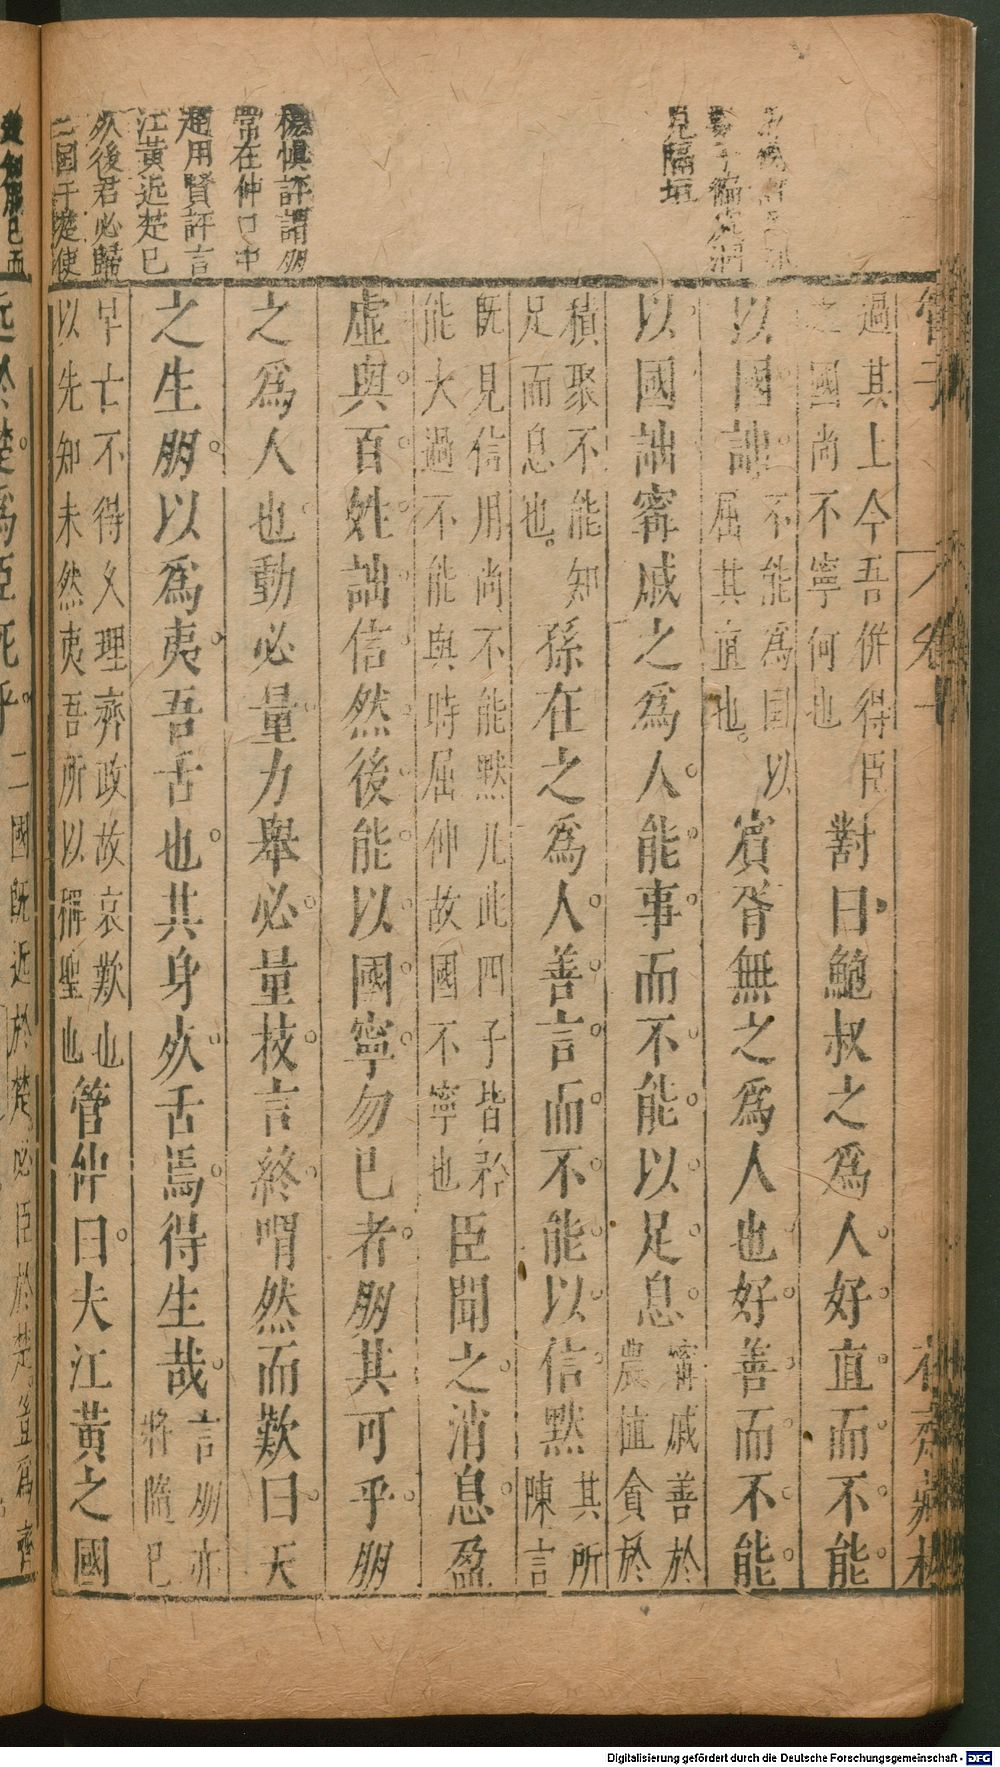 過其上今吾併得臣
之國尚不寧何也
對曰鮑叔之爲人好直而不能
以國詘
不能爲国以
屈其直也。
賓胥無之爲人也好善而不能
以國詘甯戚之爲人能事而不能以足息
甯戚善於
農植貪於
積聚不能知
足而息也。
孫在之爲人善言而不能以信默
其所
陳言
既見信用尚不能默凡此四子皆矜
能大過不能與時屈伸故國不寧也
臣聞之消息盈
虛與百姓詘信然後能以國寧勿已者朋其可乎朋
之爲人也動必量力舉必量技言終喟然而歎曰天
之生朋以爲夷吾舌也其身死舌焉得生哉
言朋亦
將隨已
早亡不得文理齊政故哀歎也
以先知未然夷吾所以稱聖也
管仲曰夫江黃之國
近於楚爲臣死乎
二國既近於楚必臣於楚豈爲齊
見隔垣
楊慎評謂朋
常在仲口中
趙用賢評言
江黃近楚已
死後君必歸
二國于楚使
管子
卷十
花齋藏板
Digitalisierung gefördert durch die Deutsche Forschungsgemeinschaft - DFG